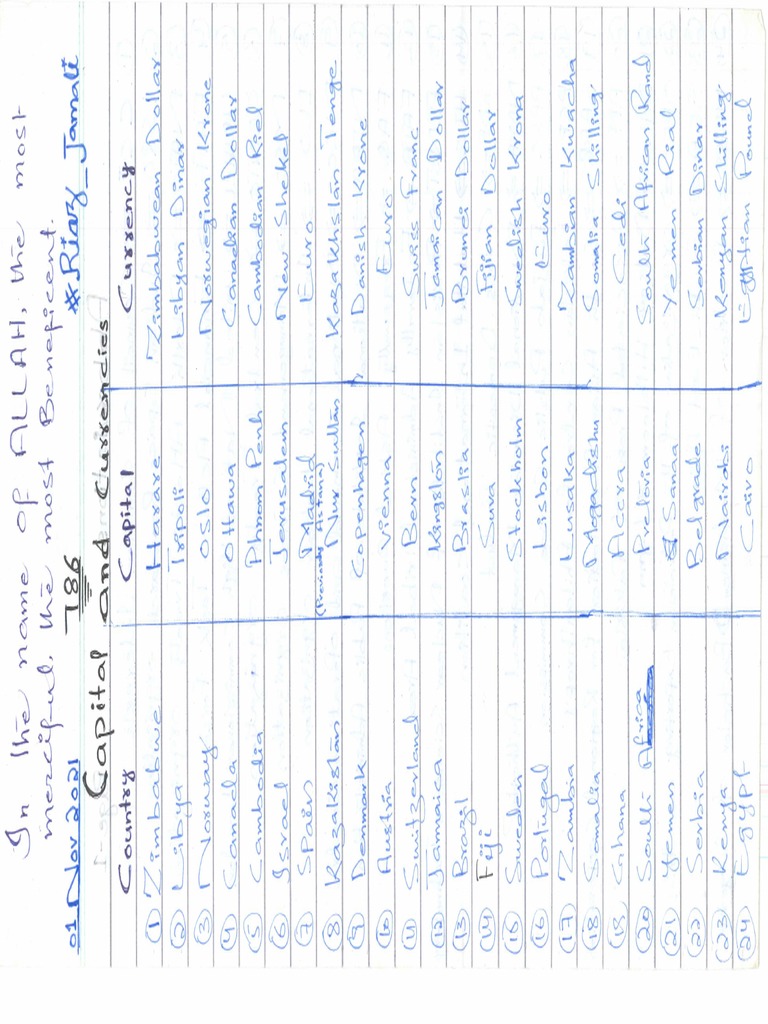 In the name of ALLAH, the most
merciful, the most Beneficent.
01 Nov 2021 786 #Riaz_Jamali
Capital and Currencies
Country Capital Currency
1 Zimbabwe Harare Zimbabwean Dollar
2 Libya Tripoli Libyan Dinar
3 Norway Oslo Norwegian Krone
4 Canada Ottawa Canadian Dollar
5 Cambodia Phnom Penh Cambodian Riel
6 Israel Jerusalem New Shekel
7 Spain Madrid Euro
(Previously Astana)
8 Kazakistan Nur Sultan Kazakhstan Tenge
9 Denmark Copenhagen Danish Krone
10 Austria Vienna Euro
11 Switzerland Bern Swiss Franc
12 Jamaica Kingston Jamaican Dollar
13 Brazil Braslia Brunei Dollar
14 Fiji Suva Fijian Dollar
15 Sweden Stockholm Swedish Krona
16 Portugal Lisbon Euro
17 Zambia Lusaka Zambian Kwacha
18 Somalia Mogadishu Somalia Shilling
19 Ghana Accra Cedi
20 South Africa Pretoria South African Rand
21 Yemen Sanaa Yemen Rial
22 Serbia Belgrade Serbian Dinar
23 Kenya Nairobi Kenyan Shilling
24 Egypt Cairo Egyptian Pound